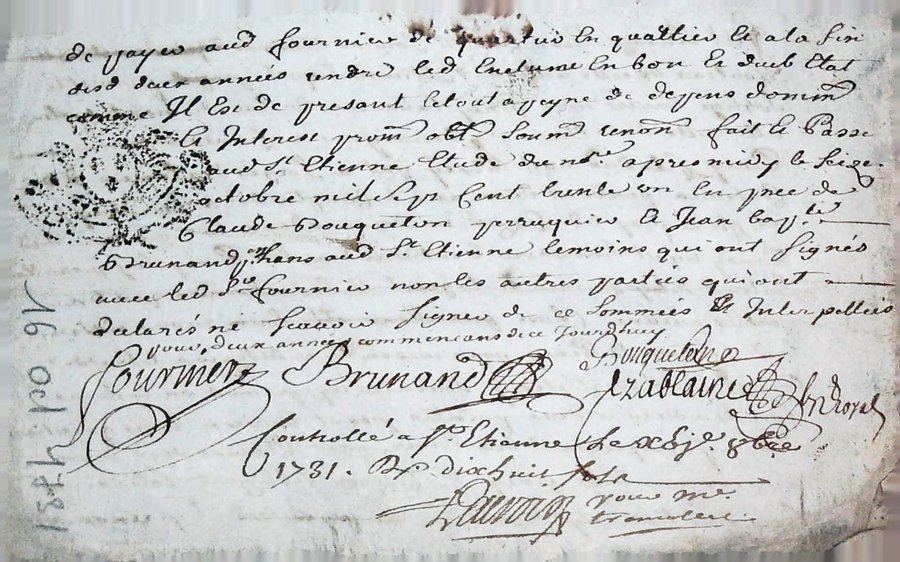 de payer aud fournier de quartier en quattier et a la fin
desd deux années rendre led enclume en bon et dueb Etat
comme Il Est de presant le tout a peyne de depens domm
et Interest prom obl soum renon fait et Passé
aud St Etienne Etude du no.re apres midy le seize
octobre mil sept cent trente un En pnce de
Claude Bouqueton perruquier et Jean bap.te
Brunand aud St Etienne temoins qui ont signés
avec led Sr fournier non les autres parties qui ont
declarés ne scavoir signer de ce sommés & Interpellés
pour deux années commencans de ce Jourdhuy
Bouqueton
fournier Brunand
no Royal
Controllé a St Etienne le 8bre
1731. R dixhuit sols
pour me
16 oct. 1731